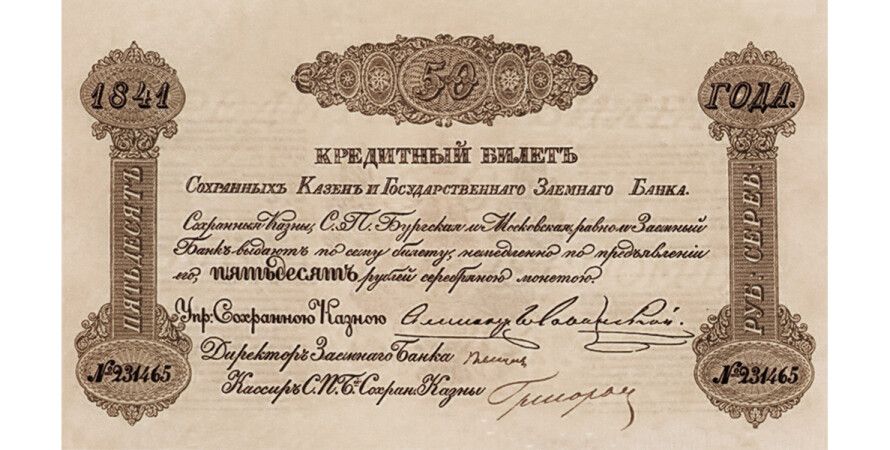 50
1841
ГОДА.
КРЕДИТНЫЙ БИЛЕТЪ
Сохранныхъ Казенъ и Государственнаго Заемнаго Банка.
Сохранныя Казны, С.П. Бургская и Московская, равномѣр Заемный
Банкъ выдаютъ по сему билету, немедленно по предъявленіи
его, пятьдесятъ рублей серебряною монетою.
ПЯТЬДЕСЯТЪ
РУБ: СЕРЕБ:
Упр: Сохранною Казною
Директоръ Заемнаго Банка
Кассиръ С.П.Б. Сохран. Казны
№231465
№231465